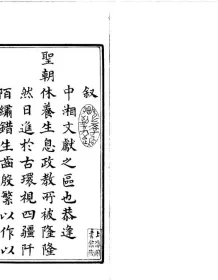 叙
中湘文獻之區也恭逢
聖朝休養生息政教所被隆隆
然日進於古環視四疆阡
陌繡錯生齒殷繁以作以